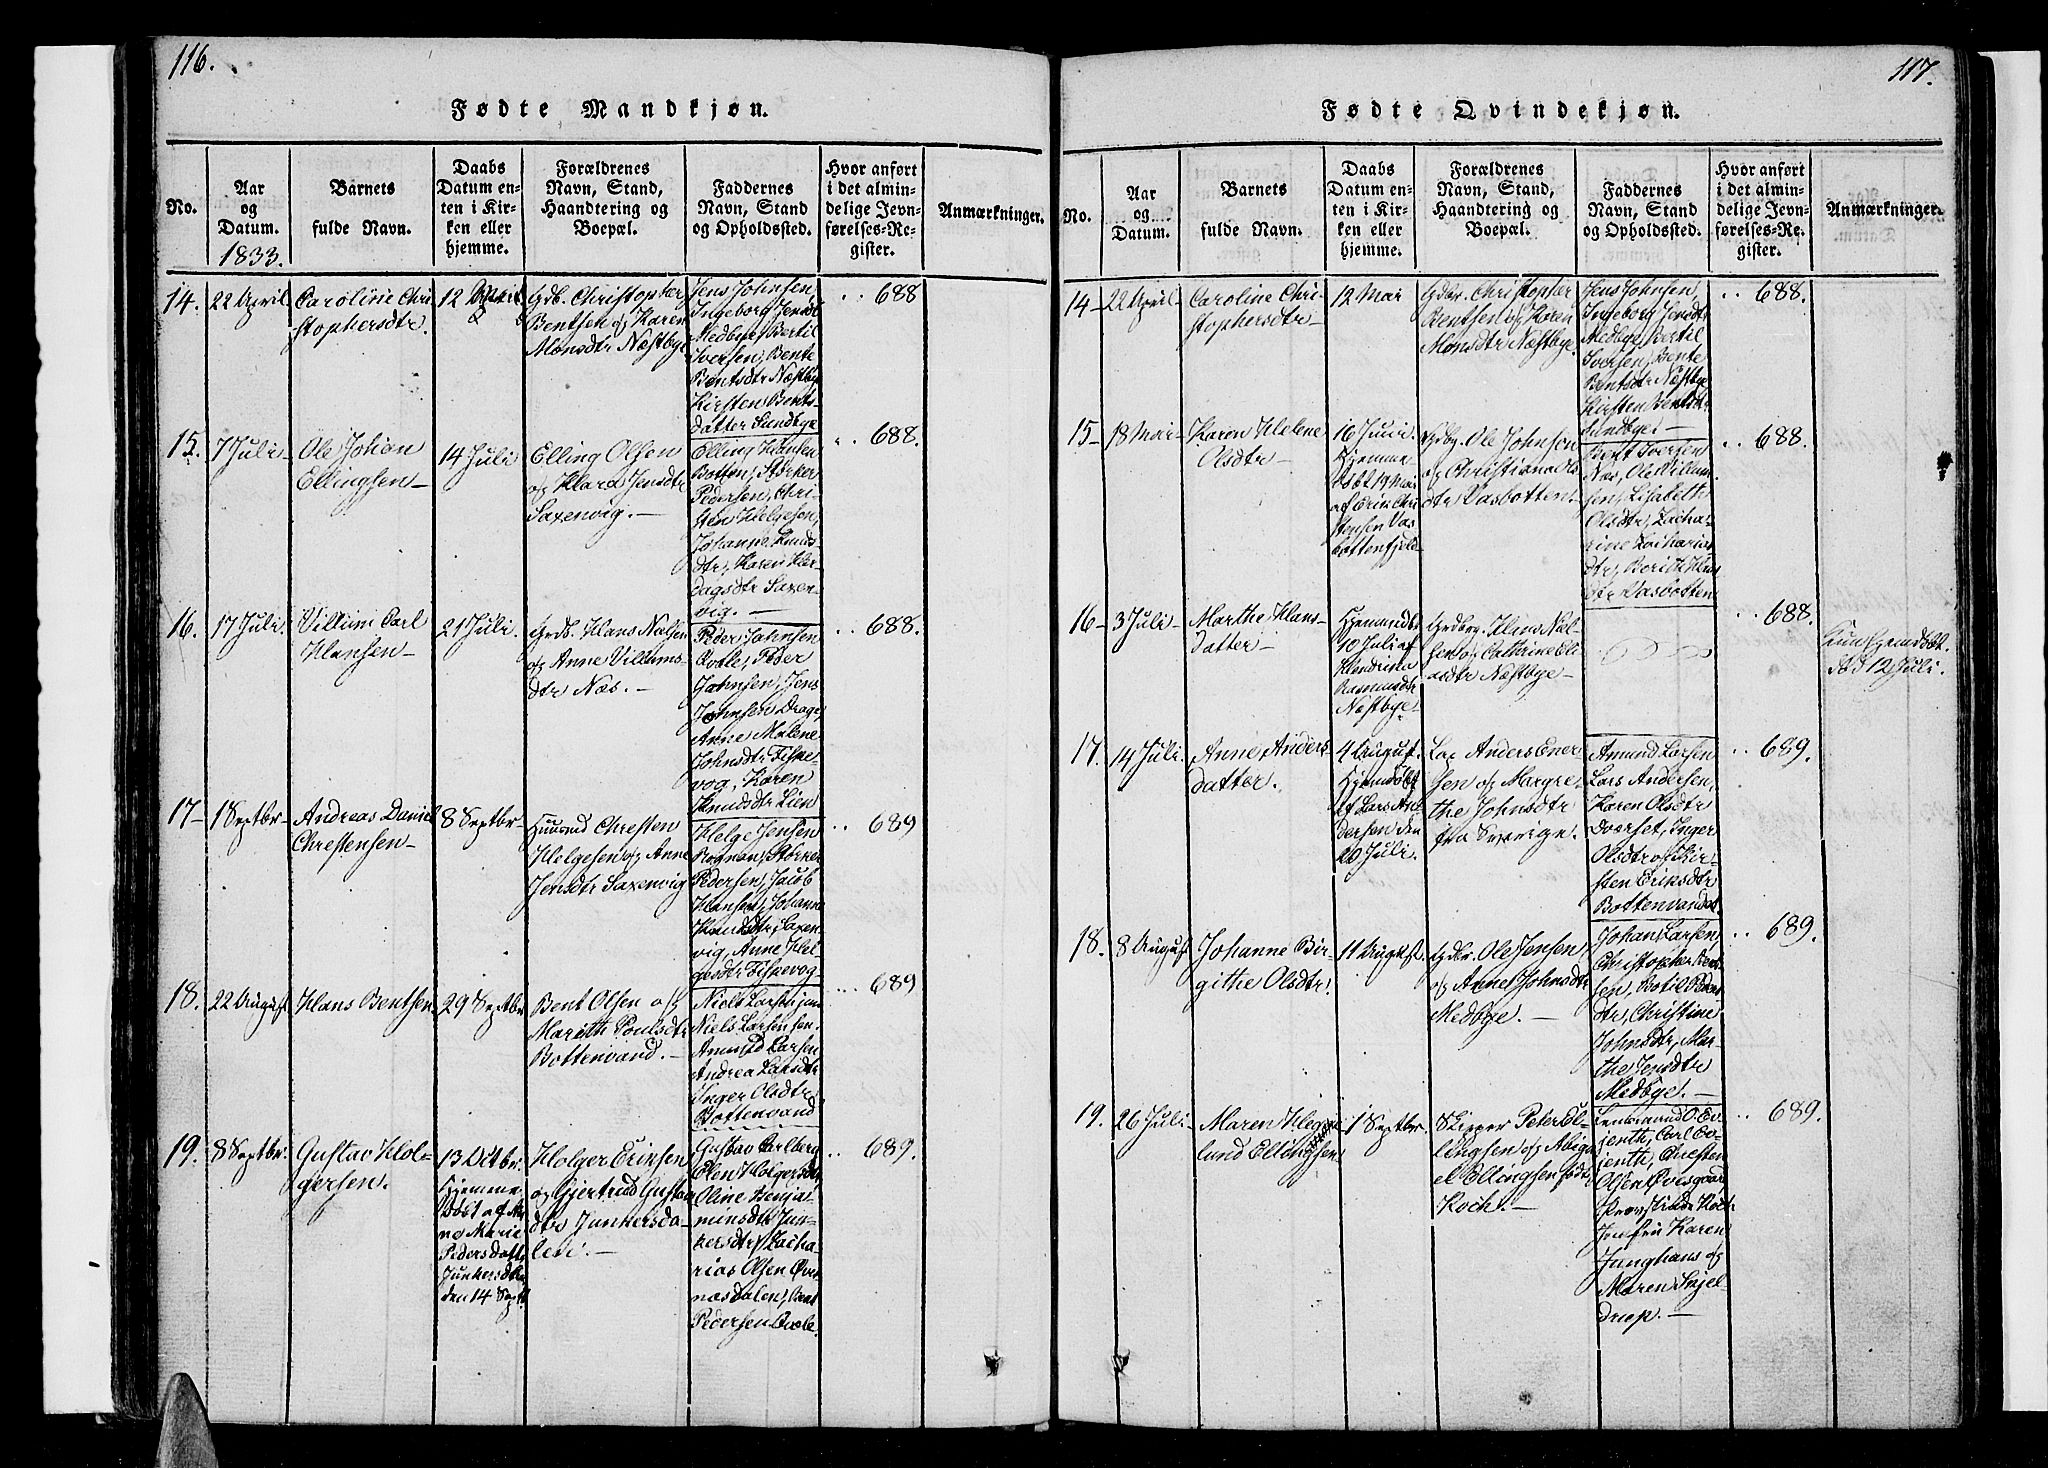 116.
Fødte Mandkjøn.
No.
Aar
og
Datum.
1833.
Barnets
fulde Navn.
Daabs
Datum en-
ten i Kir-
ken eller
hjemme.
Forældrenes
Navn, Stand,
Haandtering og
Boepæl.
Faddernes
Navn, Stand
og Opholdssted.
Hvor anført
i det almin-
delige Jevn-
førelses-Re-
gister.
Anmærkninger.
14.
22 April
Caroline Chri-
stophersdtr.
12
Grdb. Christopher
Bentsen og Karen
Monsdtr Næstbye
Jens Johnsen
Ingeborg Jensdtr
Medbye, Bertil
Iversen, Bente
Bentsdtr Næstbye
Kirsten Bents-
datter Sundbye
688
15.
7 Juli
Ole Johan
Ellingsen
14 Juli
Elling Olsen
og Klara Jensdtr
Saxenvig.
Elling Hansen
Botten, Størker
Pedersen, Chri-
sten Helgesen,
Johanne Knuds-
dtr, Karen Hær-
dagsdtr Saxen-
vig.
688.
16.
17 Juli.
Villum Carl
Hansen
21 Juli.
Grdb. Hans Nielsen
og Anne Villums-
dtr Næs.
Peder Johnsen
Peder
Johnsen, Jens
Johnsen Drage,
Anne Malene
Johnsdtr Fiske-
vog, Karen
Knudsdtr Lien
688.
17
1 Septbr
Andreas Daniel
Chrestensen
8 Septbr
Huusmd Chresten
Helgesen og Anne
Jensdtr Saxenvig
Helge Jensen
Rognan, Størker
Pedersen, Jacob
Hansen, Johanne
Knudsdtr, Saxen-
vig, Anne Hel-
gesdtr Fiskevog
689
18.
22 August
Hans Bentsen
29 Septbr
Bent Olsen og
Mareth Poulsdtr
Bottenvand.
Niels Larsen jun
Niels Larsen sen.
Amund Larsen
Andrea Larsdtr
Inger Olsdtr,
Bottenvand
689
19.
8 Septbr.
Gustav Hol-
gersen.
13 Octbr.
Hjemme
døbt af An-
ne Marie
Pedersdatter
Junkersdalen
den 14 Sept
Holger Eriksen
og Gjertrud Gustav
dtr Junkersda-
len.
Gustav Carlberg
Elen Holgersdtr
Oline Benja-
minsdtr Jun-
kersdtr, Zacha-
rias Olsen Øver-
næsdalen, Bent
Pedersen
689.
117.
Fødte Qvindekjøn.
No.
Aar
og
Datum.
Barnets
fulde Navn.
Daabs
Datum en-
ten i Kir-
ken eller
hjemme.
Forældrenes
Navn, Stand,
Haandtering og
Boepæl.
Faddernes
Navn, Stand
og Opholdssted.
Hvor anført
i det almin-
delige Jevn-
førelses-Re-
gister.
Anmærkninger.
14
22 April
Caroline Chri-
stophersdtr
12 Mai
Grdbr. Christopher
Bentsen og Karen
Monsdtr Næstbye.
Jens Johnsen
Ingeborg Jensdtr
Medbye, Bertil
Iversen, Bente
Bentsdtr Næstbye
Kirsten Bentsdtr
Sundbye.
688.
15
18 Mai
Karen Helene
Olsdtr
16 Juni.
Hjemme
døbt 19 Mai
af Erik Chri-
stensen Vas-
bottenfjeld
Grdbg. Ole Johnsen
og Christiana Ols
dtr Vasbotten.
Bent Iversen
Næs, Ole Villum-
sen, Lisabeth
Olsdtr, Zacha-
rine Zacharias
dtr, Berith Hans
dtr Vasbotten
688.
16
3 Juli
Marthe Hans-
datter
Hjemmdbt
10 Juli af
Hendrina
Rasmusdtr
Næstbye
Grdbrg. Hans Niel-
sen og Cathrine Eli-
asdtr Næstbye
688.
Kun hjemdøbt.
død 12 Juli.
17.
14 Juli.
Anne Anders
datter.
4 August.
Hjemdøbt
af Lars An-
dersen den
20 Juli.
Lap Anders Ener-
sen og Margre-
the Johnsdtr
fra Sverige.
Amund Larsen
Lars Andersen,
Karen Olsdtr
Inger
Olsdtr og Kir-
sten Eriksdtr
Bottenvandet
689.
18.
8 August
Johanne Bir-
githe Olsdtr.
11 August.
Grdbr. Ole Jensen
og Anne Johnsdtr
Medbye.
Johan Larsen,
Christopher Bent-
sen, Botil Peders
dtr, Christine
Johnsdtr, Mar-
the Jensdtr
Medbye.
689.
19.
26 Juli
Maren
lund Ellingsen
1 Septbr.
Skipper Peter El-
lingsen og Abiga-
el Ellingsen født
Koch.
Lensmand Ev-
jenth, Carl Ev-
jenth, Chresten
Olsen
Jomfru Karen
Junghans og
Maren Snjel-
drup.
689.